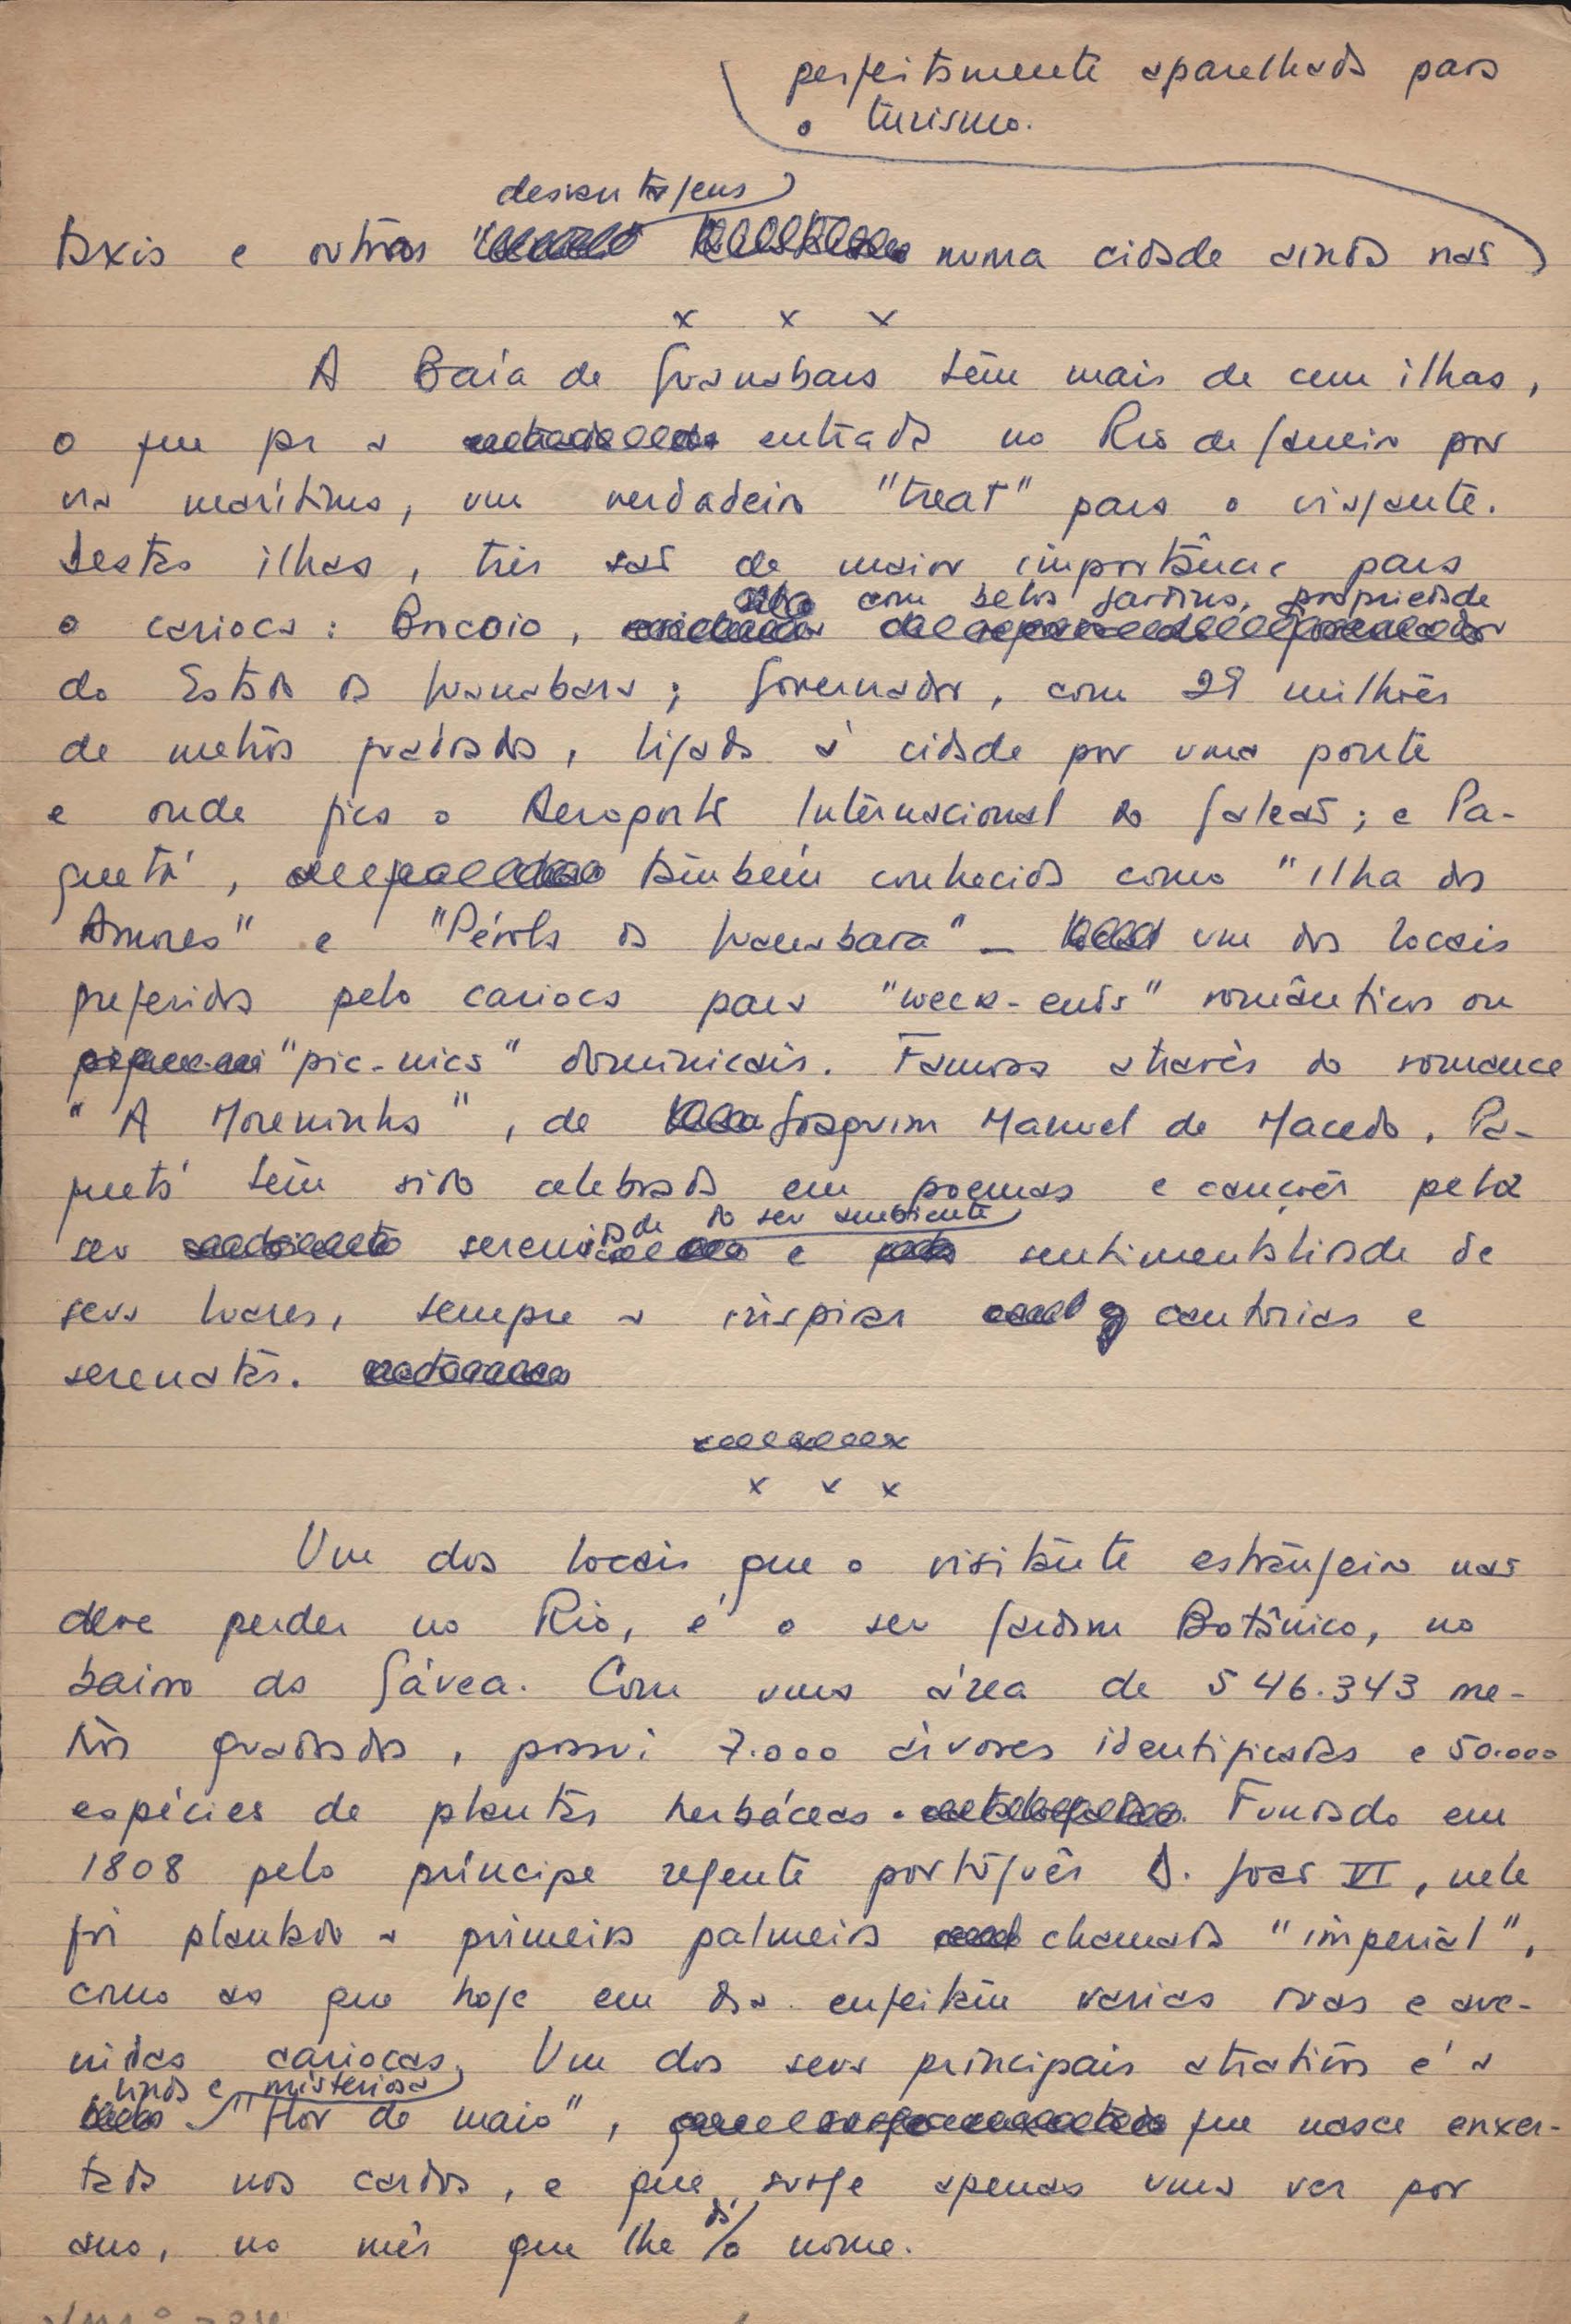 perfeitamente aparelhada para
o turismo.
desvantagens
taxis e outras numa cidade ainda não
x x x
A Baía de Guanabara têm mais de cem ilhas,
o que faz a entrada no Rio de Janeiro por
via marítima, um verdadeiro "treat" para o viajante.
Destas ilhas, três são de maior importância para
com belos jardins, propriedade
o carioca: Brocoió,
do Estado da Guanabara; Governador, com 29 milhões
de metros quadrados, ligada à cidade por uma ponte
e onde fica o Aeroporto Internacional do Galeão; e Pa-
quetá, também conhecida como "Ilha dos
Amores" e "Pérola da Guanabara" — um dos locais
preferidos pelo carioca para "week-ends" românticos ou
"pic-nics" dominicais. Famosa através do romance
"A Moreninha", de Joaquim Manuel de Macedo, Pa-
quetá têm sido celebrada em poemas e canções pela
idade do seu ambiente
seu seren e sentimentalidade de
seus luares, sempre a inspirar cantorias e
serenatas.
x x x
Um dos locais que o visitante estrangeiro não
deve perder no Rio, é o seu Jardim Botânico, no
bairro da Gávea. Com uma área de 546.343 me-
tros quadrados, possui 7.000 árvores identificadas e 50.000
espécies de plantas herbáceas. Fundado em
1808 pelo príncipe regente português D. João VI, nele
foi plantada a primeira palmeira chamada "imperial",
como as que hoje em dia enfeitam varias ruas e ave-
nidas cariocas. Um dos seus principais atrativos é a
linda e misteriosa
"flor de maio", que nasce enxer-
tada nos cardos, e que surge apenas uma vez por
dá
ano, no mês que lhe o nome.